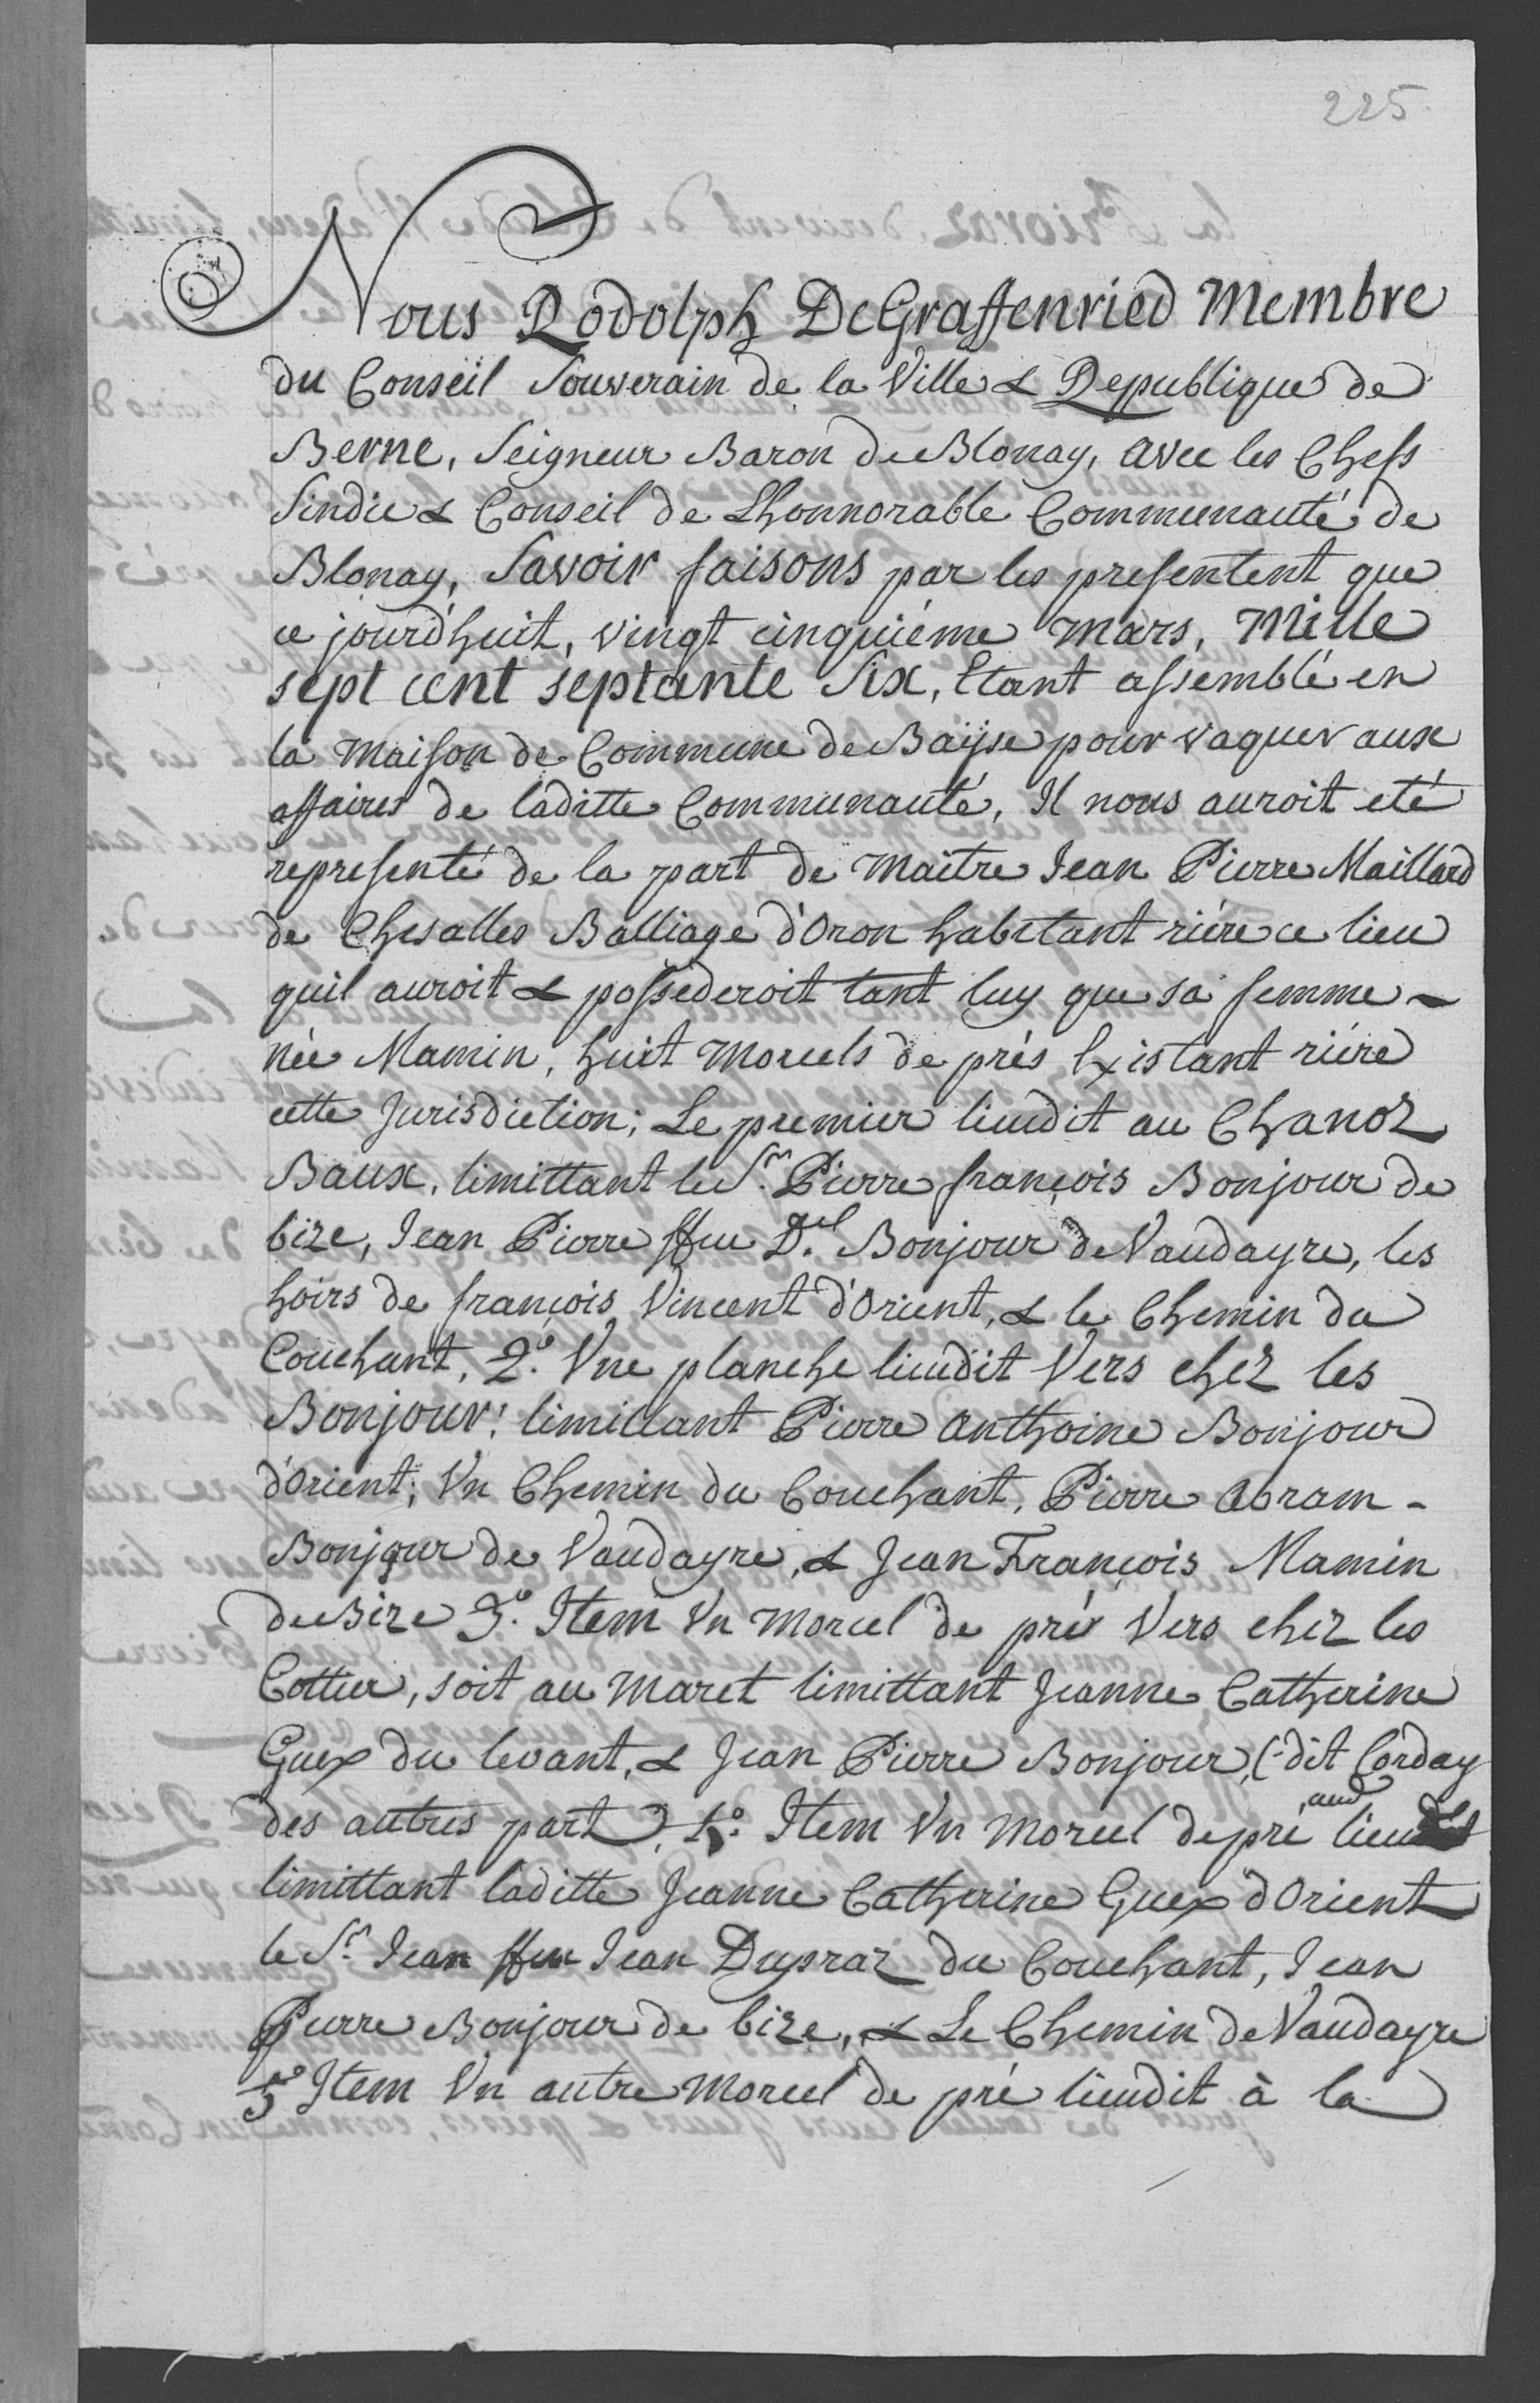 225
Nous Rodolph DeGraffenried Membre
du Conseil Souverain de la Ville & Republique de
Berne, Seigneur Baron de Blonay, avec les Chefs
Sindic & Conseil de Lhonnorable Communauté de
Blonay, Savoir faisons par les presentent que
ce jourd'huit, vingt cinquiéme mars, Mille
sept cent septante Six, Etant assemblé en
la Maison de Commune de Baÿse pour vaquer aux
affaires de laditte Communauté, Il nous auroit eté
representé de la part de Maitre Jean Pierre Maillard
de Chesalles Balliage d'Oron habitant riére ce lieu
quil auroit & possederoit tant luy que sa femme
née Mamin, huit Morcels de prés Existant riére
cette Jurisdiction; Le premier lieudit au Chanoz
Baux, limittant le Sr. Pierre françois Bonjour de
bize, Jean Pierre ffeu Del. Bonjour de Vaudayre, les
hoirs de françois Vincent d'Orient, & le Chemin du
Couchant, 2.º Vne planche lieudit Vers chez les
Bonjour; limittant Pierre Anthoine Bonjour
d'Orient; Vn Chemin du Couchant, Pierre Abram
Bonjour de Vaudayre, & Jean François Mamin
de Bize 3.º Item Vn Morcel de pré Vers chez les
Cottier, soit au Maret limittant Jeanne Catherine
Guex du levant, & Jean Pierre Bonjour, (dit Corday
des autres part) 4.º Item Vn Morcel de pré aud lieu
limittant laditte Jeanne Catherine Guex d'Orient
le Sr. Jean ffeu Jean Dupraz du Couchant, Jean
Pierre Bonjour de bize, & Le Chemin de Vaudayre
5º Item Vn autre Morcel de pré lieudit à la